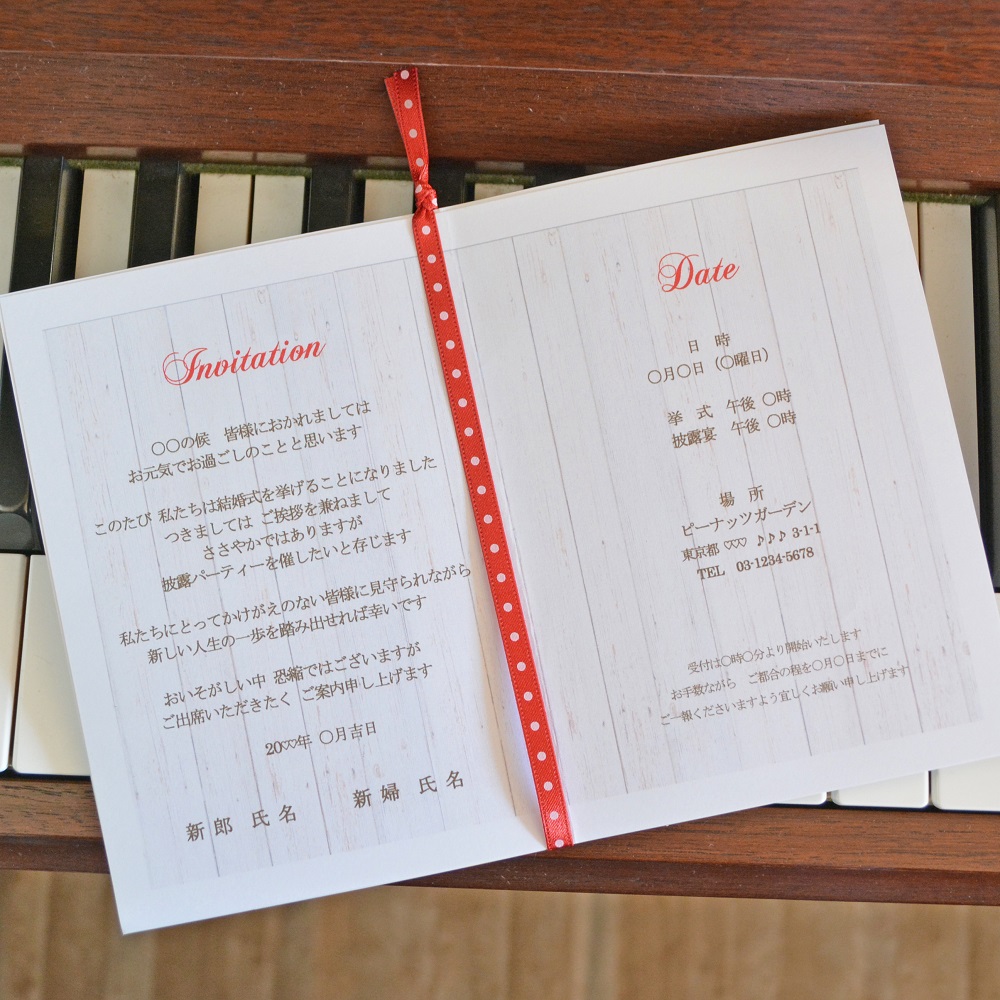 Invitation
〇〇の候　皆様におかれましては
お元気でお過ごしのことと思います
このたび 私たちは結婚式を挙げることになりました
つきましては ご挨拶を兼ねまして
ささやかではありますが
披露パーティーを催したいと存じます
私たちにとってかけがえのない皆様に見守られながら
新しい人生の一歩を踏み出せれば幸いです
おいそがしい中 恐縮ではございますが
ご出席いただきたく ご案内申し上げます
20♡♡年 〇月吉日
新郎 氏名　　新婦 氏名
Date
日 時
〇月〇日（〇曜日）
挙 式　午後 〇時
披露宴　午後 〇時
場 所
ピーナッツガーデン
東京都 ♡♡♡ ♪♪♪ 3-1-1
TEL　03-1234-5678
受付は〇時〇分より開始いたします
お手数ながら　ご都合の程を〇月〇日までに
ご一報くださいますよう宜しくお願い申し上げます